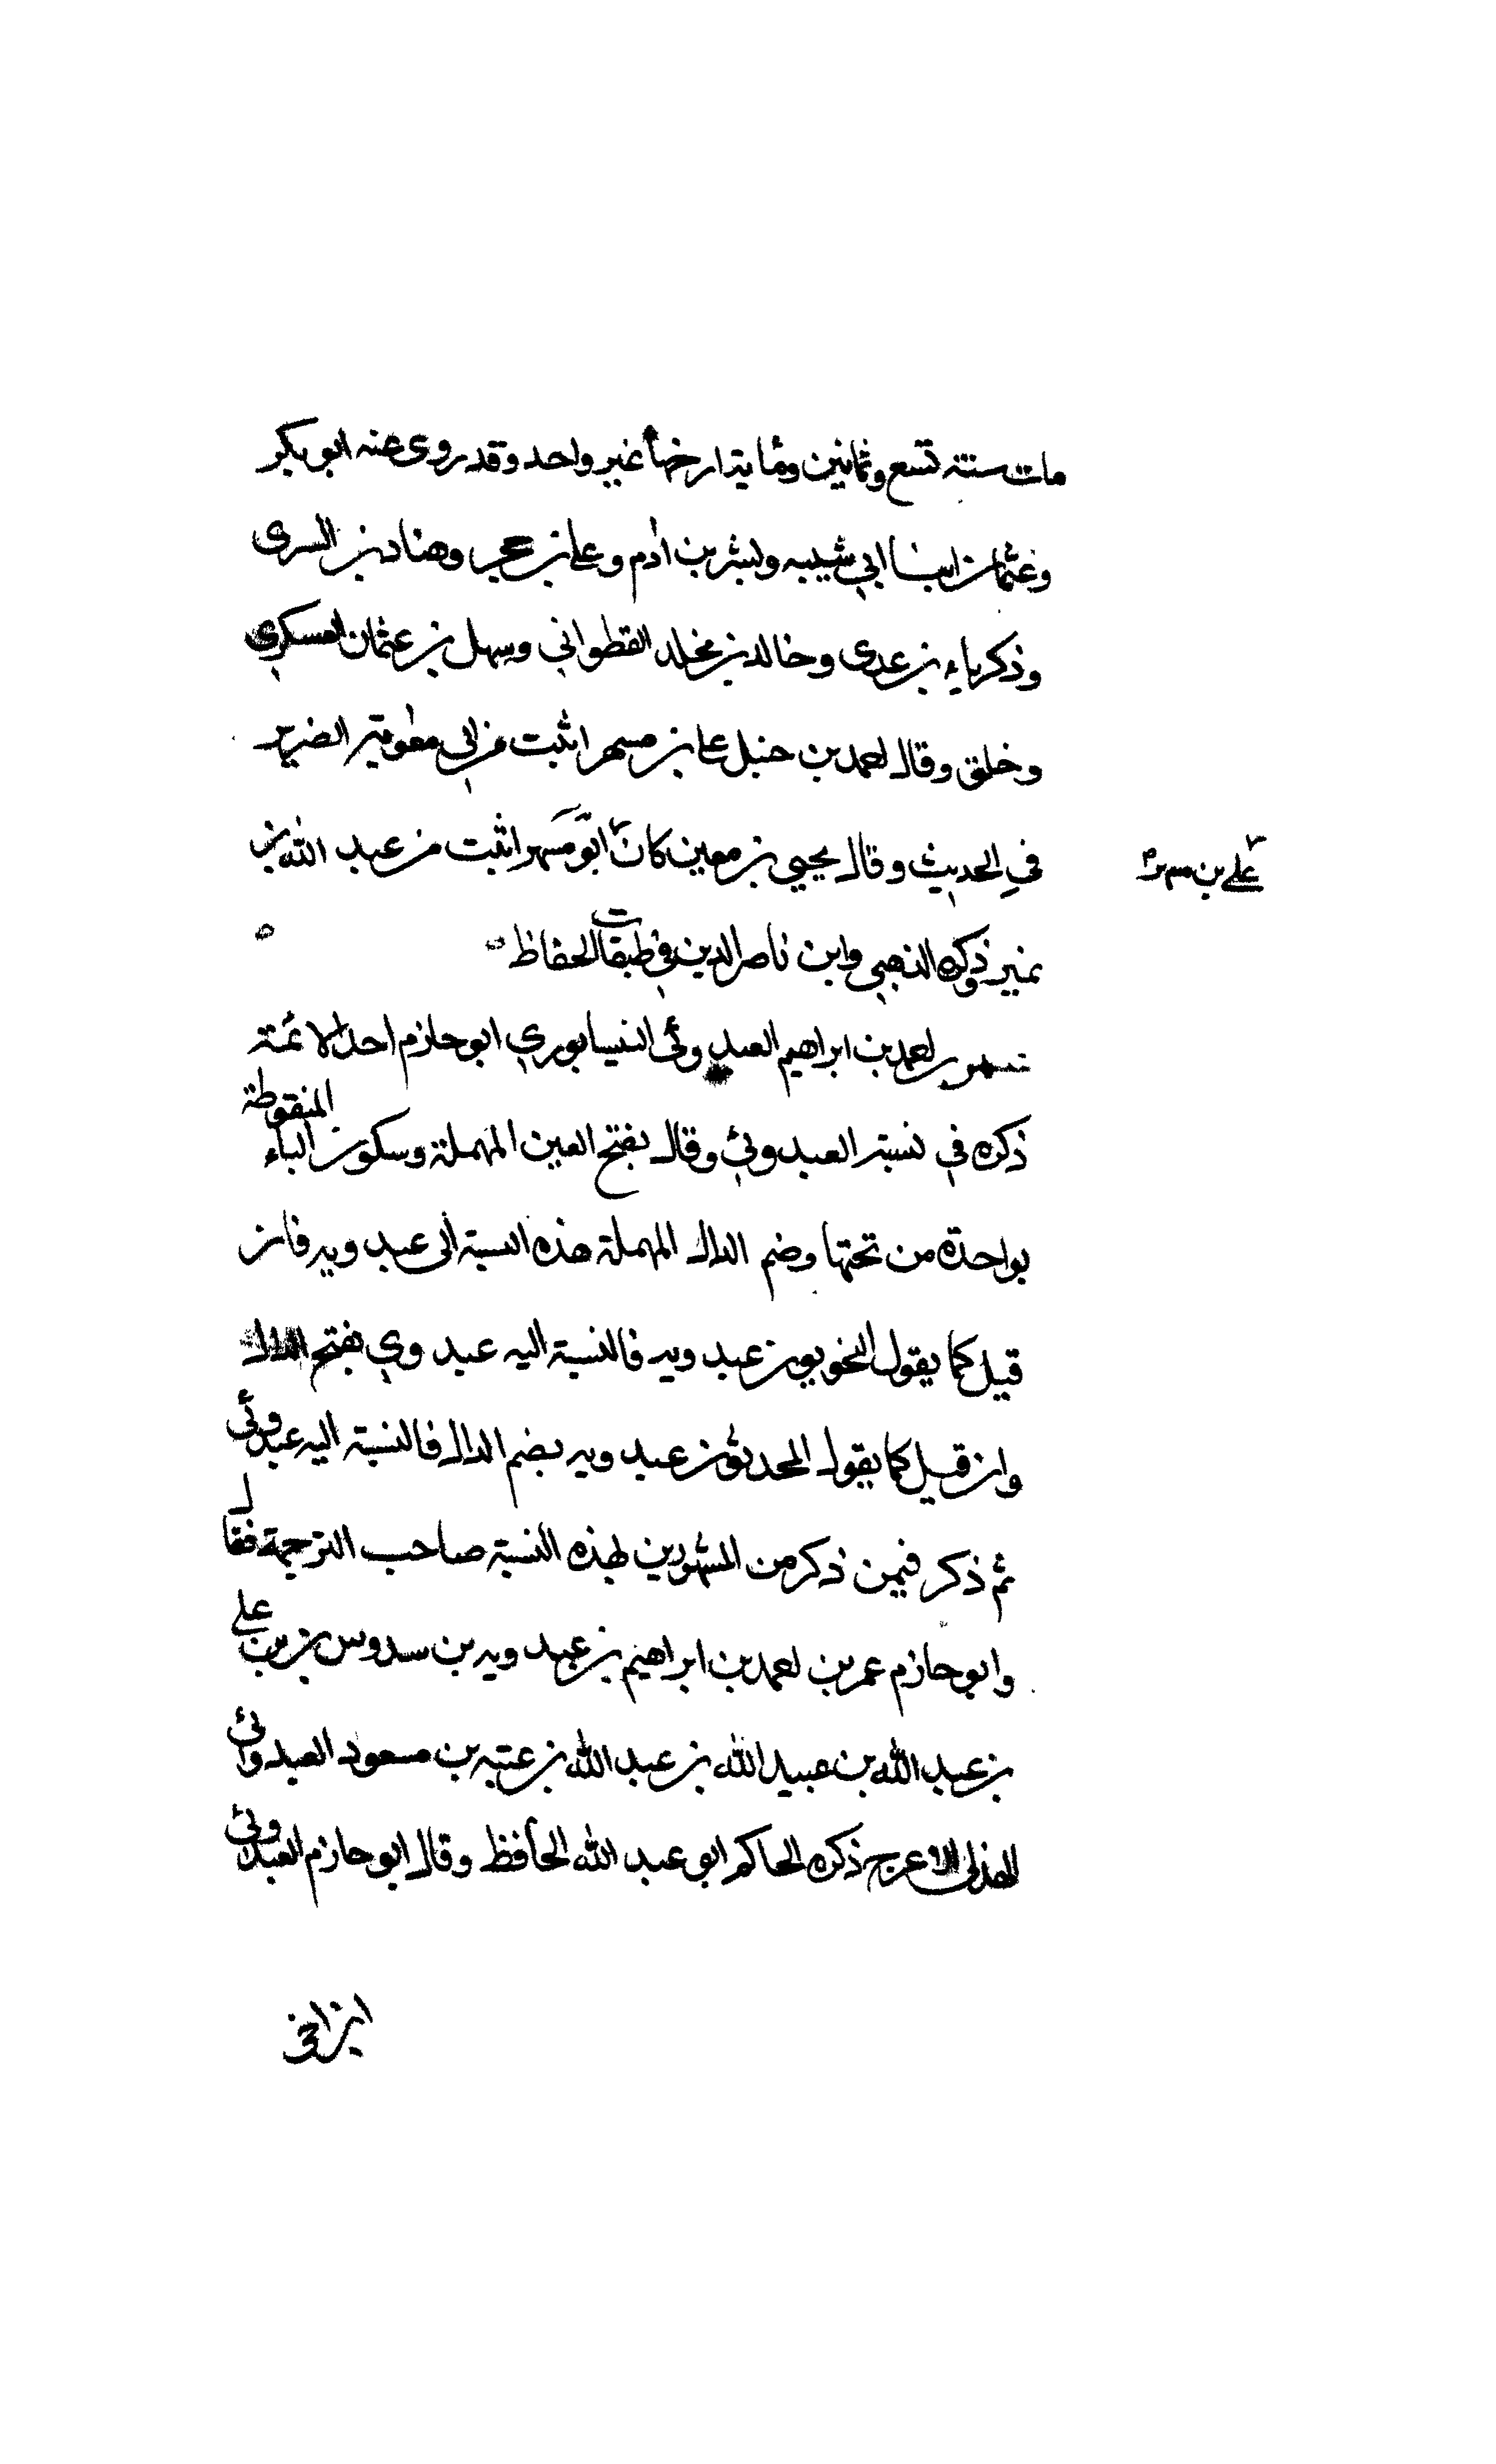 مات سنة تسع وثمانين وماية ارخها غير واحد وقد روى عنه ابو بكر
وعثمان ابنا ابي شيبه وبشر بن ادم وعلي بن حجر وهناد بن السرى
وذكرياء بن عدى وخالد بن مخلد القطواني وسهل بن عثمان العسكري
وخلق وقال احمد بن حنبل علي بن مسهر اثبت من ابي معوية الضرير
في الحديث وقال يحيى بن معين كان ابو مسهر اثبت من عبد الله بن
علي بن مسهر
نمير ذكره الذهبي وابن ناصر الدين في طبقات الحفاظ
احمد بن ابراهيم العبدوئي النيسابوري ابو حازم احد الائمة
ذكره في نسبة العبدوئي وقال بفتح العين المهملة وسكون الباء المنقوطة
بواحدة من تحتها وضم الدال المهملة هذه النسبة الى عبدويه فان
قيل كما يقول النحويون عبدويه فالنسبة اليه عبدوي بفتح الدال
وان قيل كما يقول المحدثون عبدويه بضم الدال فالنسبة اليه عبدوئي
ثم ذكر فيمن ذكر من المشهورين بهذه النسبة صاحب الترجمة فقال
وابو حازم عمر بن احمد بن ابراهيم بن عبدويه بن سدوس بن علي
بن عبد الله بن عبيد الله بن عبد الله بن عتبه بن مسعود العبدوائي
الهذلي الاعرج ذكره الحاكم ابو عبد الله الحافظ وقال ابو حازم العبدوئي
ابن اخي